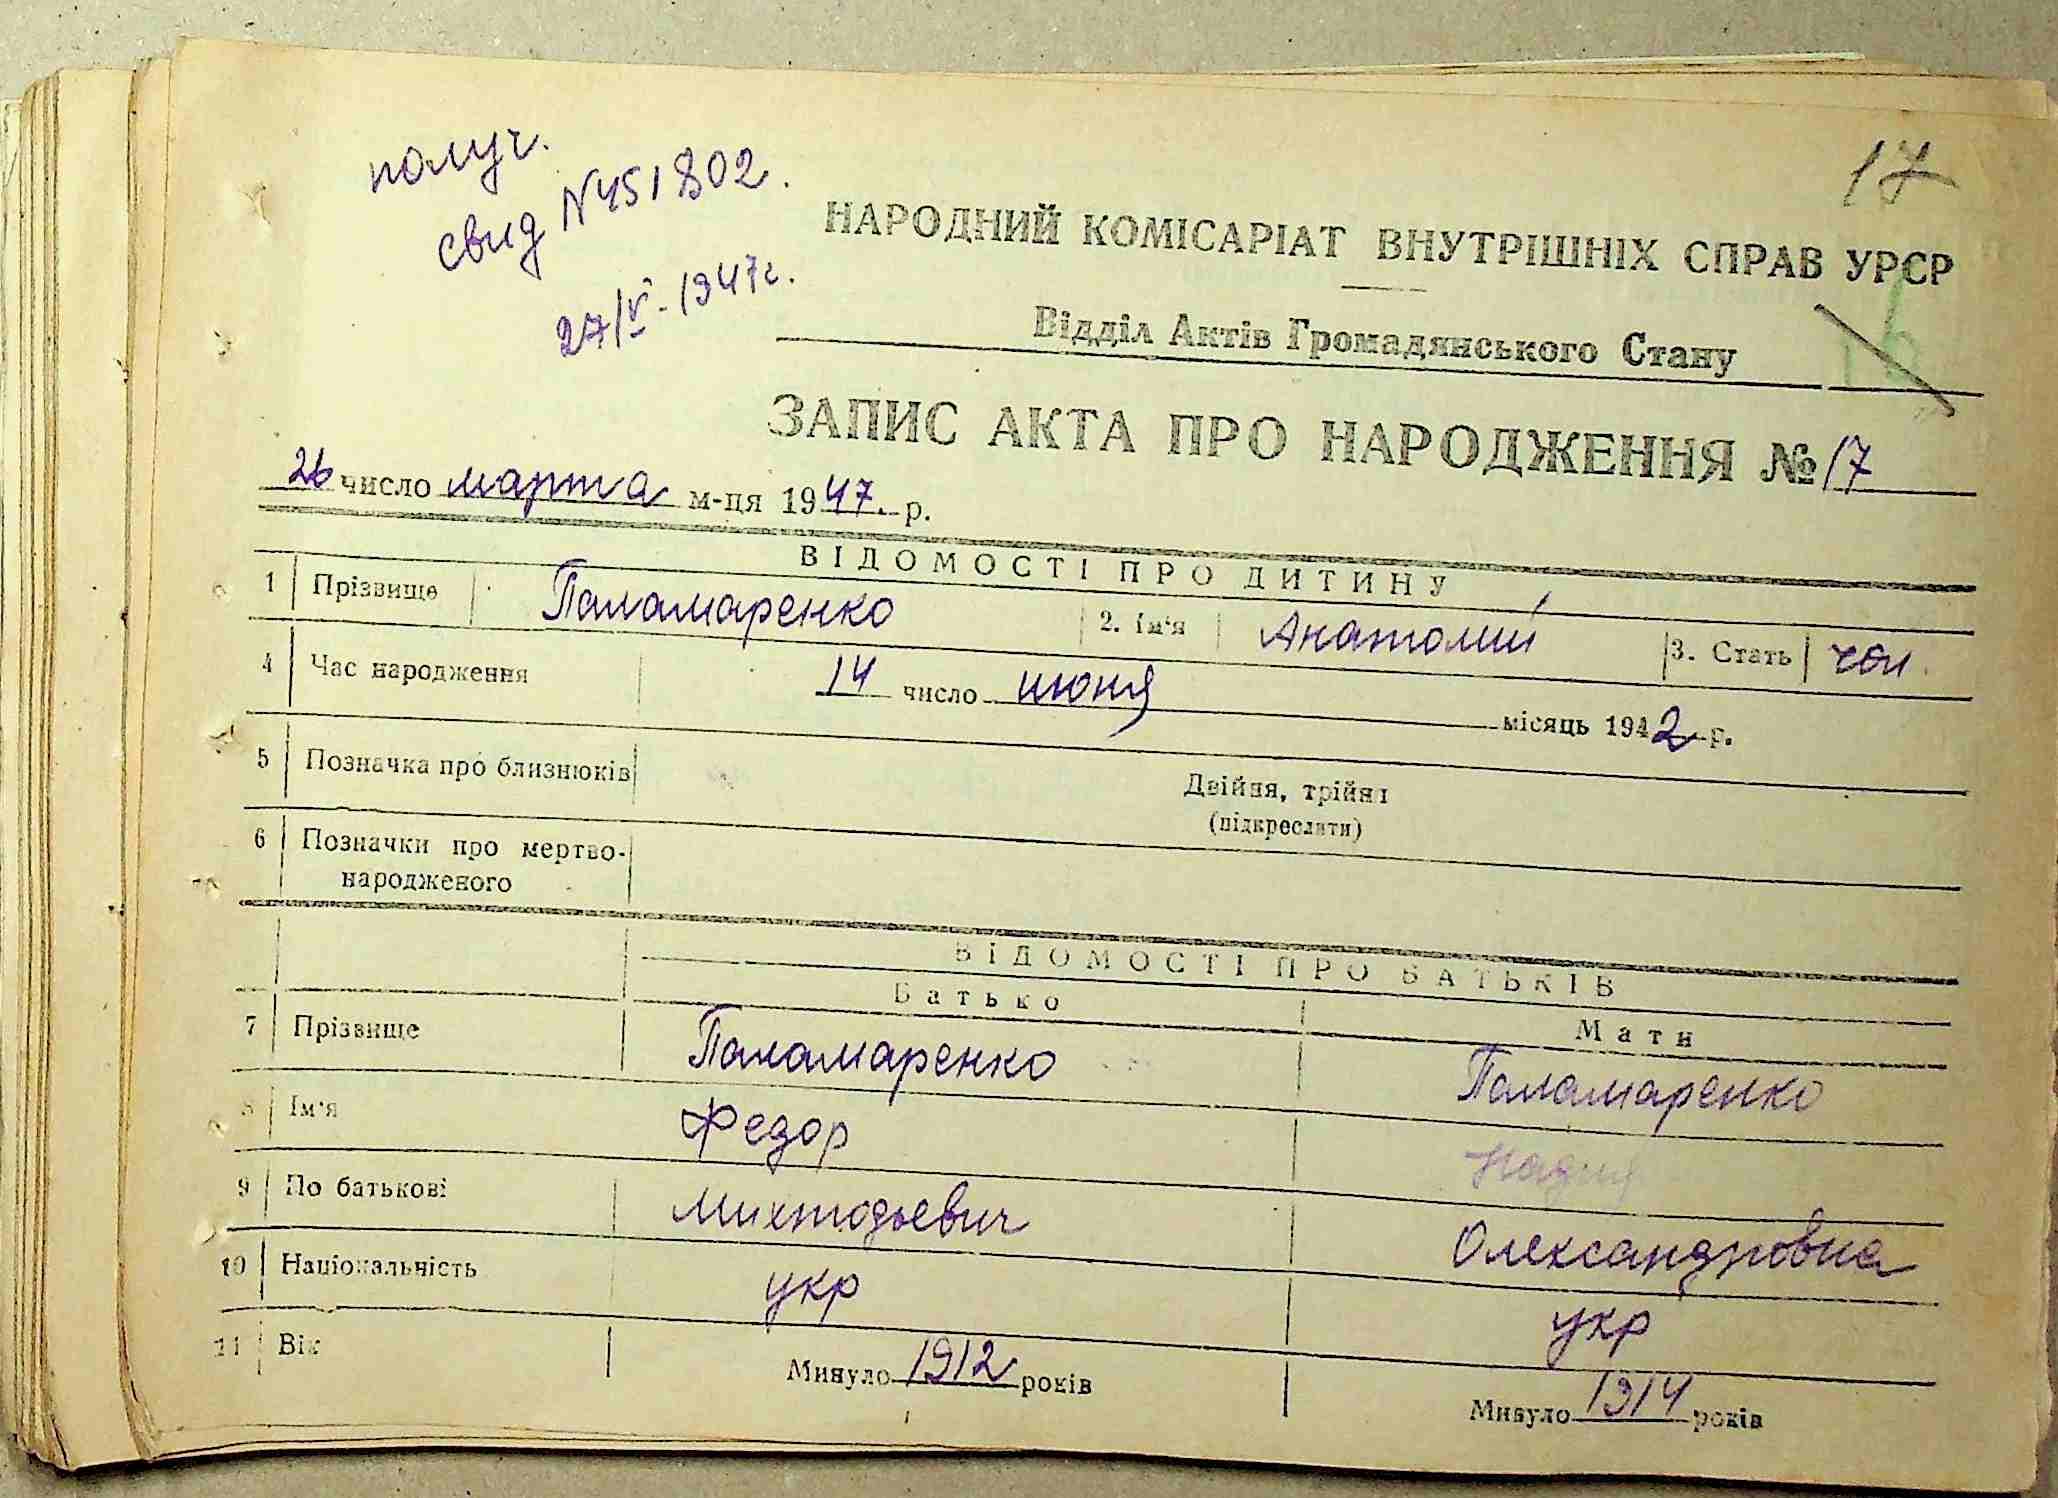 17
получ.
свид N451802.
27/V-1947г.
НАРОДНИЙ КОМІСАРІАТ ВНУТРІШНІХ СПРАВ УРСР
Відділ Актів Громадянського Стану
ЗАПИС АКТА ПРО НАРОДЖЕННЯ № 17
26 число марта м-ця 1947. р.
ВІДОМОСТІ ПРО ДИТИНУ
1 Прізвище Паламаренко 2. Ім'я Анатолий 3. Стать чол.
4 Час народження 14 число июня місяць 1942 р.
5 Позначка про близнюків Двійня, трійня
(підкреслити)
6 Позначки про мертво-
народженого
ВІДОМОСТІ ПРО БАТЬКІВ
Батько Мати
7 Прізвище Паламаренко Паламаренко
8 Ім'я Федор Надия
9 По батькові Михтодьевич Олександровна
10 Національність укр укр
11 Вік Минуло 1912 років Минуло 1914 років